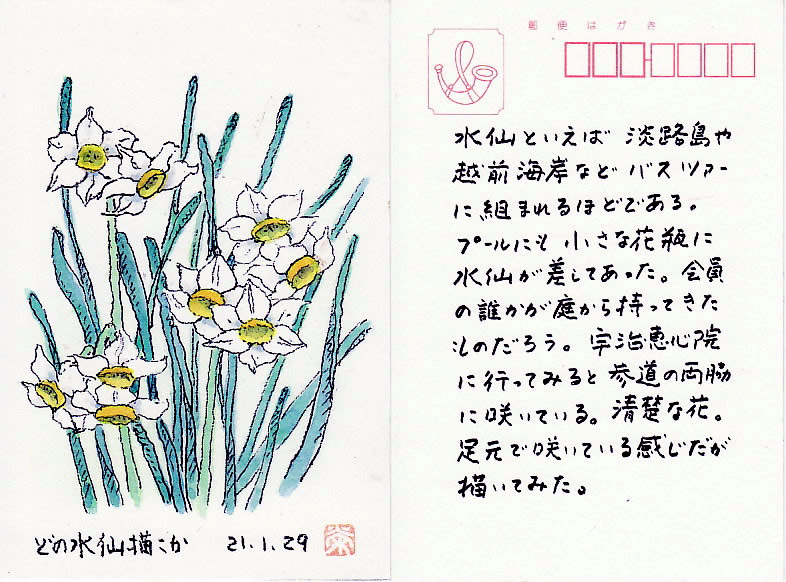 どの水仙描こか 21.1.29
郵便はがき
水仙といえば 淡路島や
越前海岸など バスツアー
に組まれるほどである。
プールにも 小さな花瓶に
水仙が差してあった。会員
の誰かが庭から持ってきた
ものだろう。宇治恵心院
に行ってみると 参道の両脇
に咲いている。清楚な花。
足元で咲いている感じだが
描いてみた。